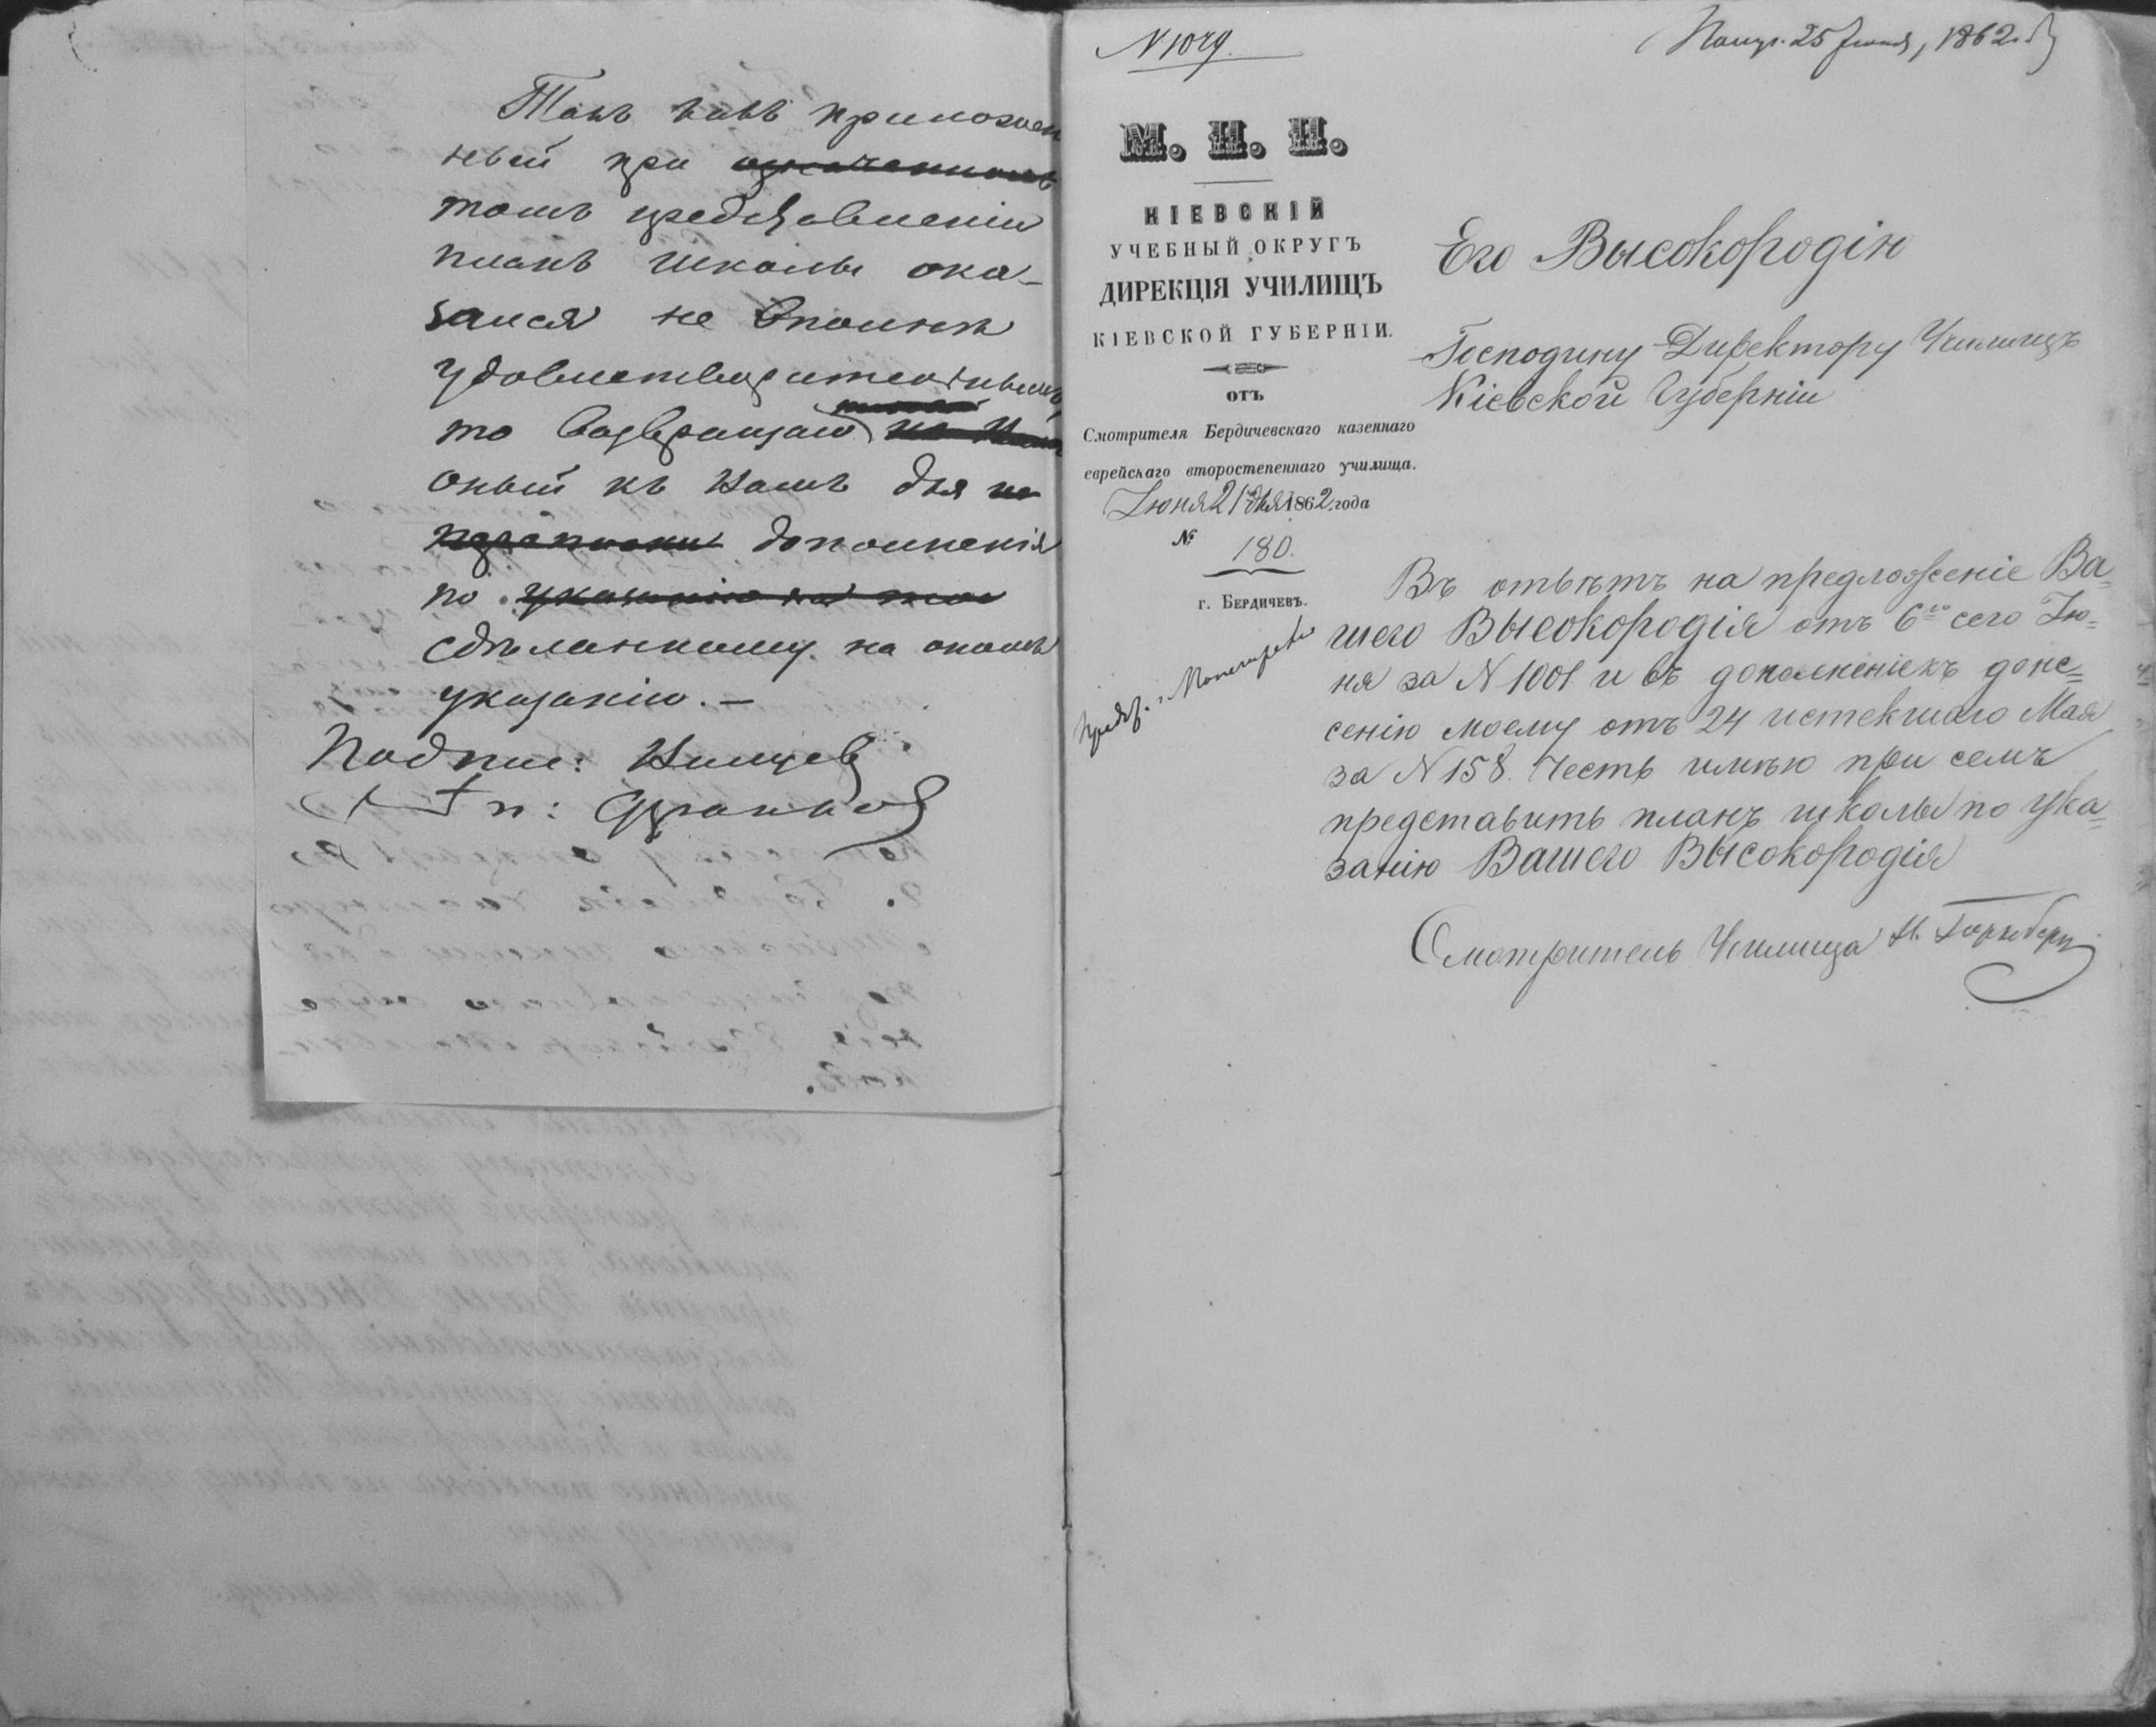 Такъ какъ приложен
ный при означенномъ
томъ представленіи
планъ школы ока-
зался не вполнѣ
удовлетворительнымъ,
то возвращаю
оный къ Вамъ для
дополненія
по
сдѣланному на ономъ
указанію.-
Подпис:
N 1049.
Получ. 25 Іюня, 1862 г.
М. Н. П.
КІЕВСКІЙ
УЧЕБНЫЙ ОКРУГЪ
ДИРЕКЦІЯ УЧИЛИЩЪ
КІЕВСКОЙ ГУБЕРНІИ.
ОТЪ
Смотрителя Бердичевскаго казеннаго
еврейскаго второстепеннаго училища.
Іюня 21 дня 1862 года
№ 180.
г. Бердичевъ.
Его Высокородію
Господину Директору Училищъ
Кіевской Губерніи
Въ отвѣтъ на предложеніе Ва=
шего Высокородія отъ 6го сего Ію=
ня за N 1001 и въ дополненіе къ доне=
сенію моему отъ 24 истекшаго Мая
за N 158. Честь имѣю при семъ
представить планъ школы по ука=
занію Вашего Высокородія
Смотритель Училища